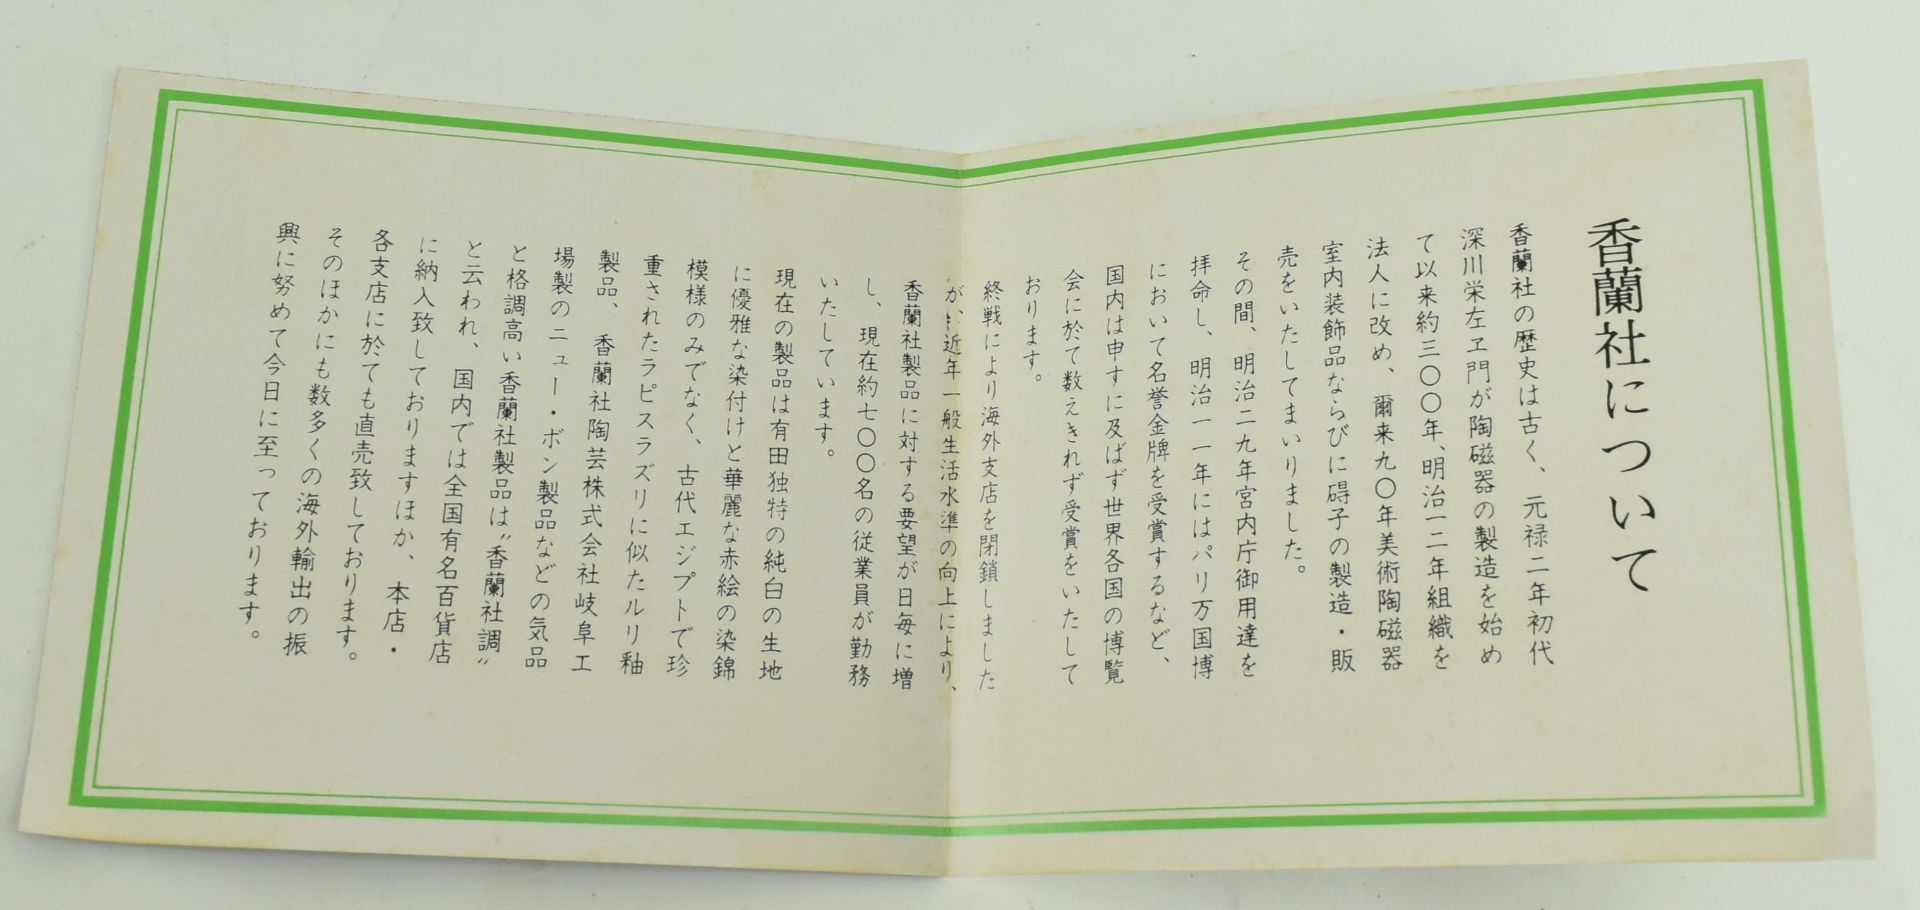 香蘭社について
香蘭社の歴史は古く、元禄二年初代
深川栄左ヱ門が陶磁器の製造を始め
て以来約三〇〇年、明治一二年組織を
法人に改め、爾来九〇年美術陶磁器
室内装飾品ならびに碍子の製造・販
売をいたしてまいりました。
その間、明治二九年宮内庁御用達を
拝命し、明治一一年にはパリ万国博
において名誉金牌を受賞するなど、
国内は申すに及ばず世界各国の博覧
会に於て数えきれず受賞をいたして
おります。
終戦により海外支店を閉鎖しました
が、近年一般生活水準の向上により、
香蘭社製品に対する要望が日毎に増
し、現在約七〇〇名の従業員が勤務
いたしています。
現在の製品は有田独特の純白の生地
に優雅な染付けと華麗な赤絵の染錦
模様のみでなく、古代エジプトで珍
重されたラピスラズリに似たルリ釉
製品、香蘭社陶芸株式会社岐阜工
場製のニュー・ボン製品などの気品
と格調高い香蘭社製品は〝香蘭社調〟
と云われ、国内では全国有名百貨店
に納入致しておりますほか、本店・
各支店に於ても直売致しております。
そのほかにも数多くの海外輸出の振
興に努めて今日に至っております。